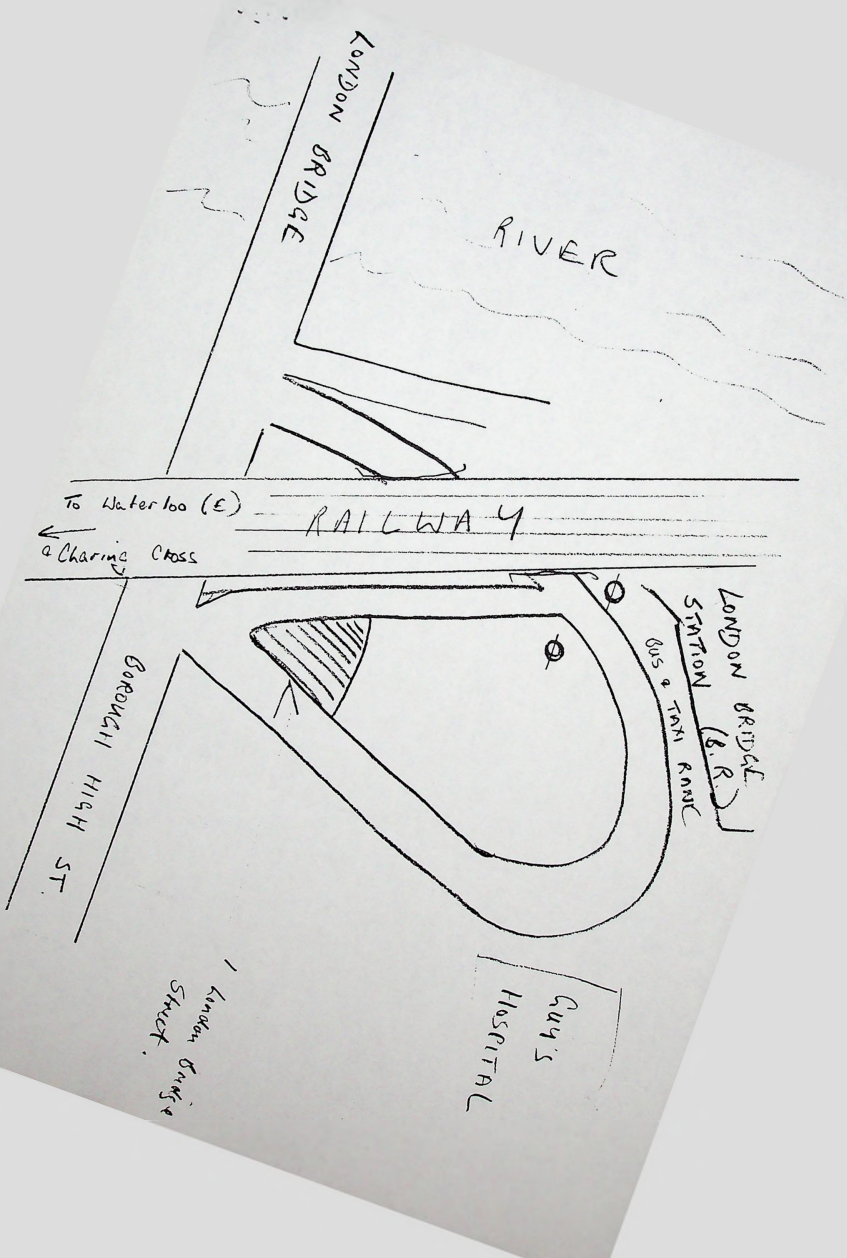 LONDON BRIDGE
RIVER
To Waterloo (E)
& Charing Cross
RAILWAY
LONDON BRIDGE
STATION (B.R.)
BUS & TAXI RANK
BOROUGH HIGH ST.
GUY'S
HOSPITAL
1 London Bridge
Street.